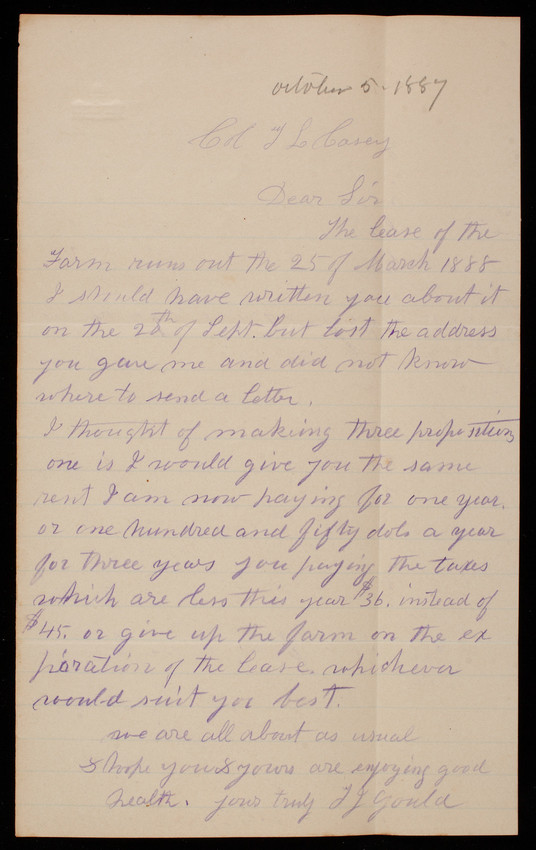 october 5. 1887
Col T L Casey
Dear Sir
The lease of the
Farm runs out the 25 of March 1888
I should have written you about it
on the 28th of Sept. but lost the address
you gave me and did not know
where to send a letter.
I thought of making three propositions
one is I would give you the same
rent I am now paying for one year.
or one hundred and fifty dols a year
for three years you paying the taxes
which are less this year $36. instead of
$45. or give up the farm on the ex
piration of the lease. whichever
would suit you best.
we are all about as usual
& hope you & yours are enjoying good
health. yours truly T J Gould